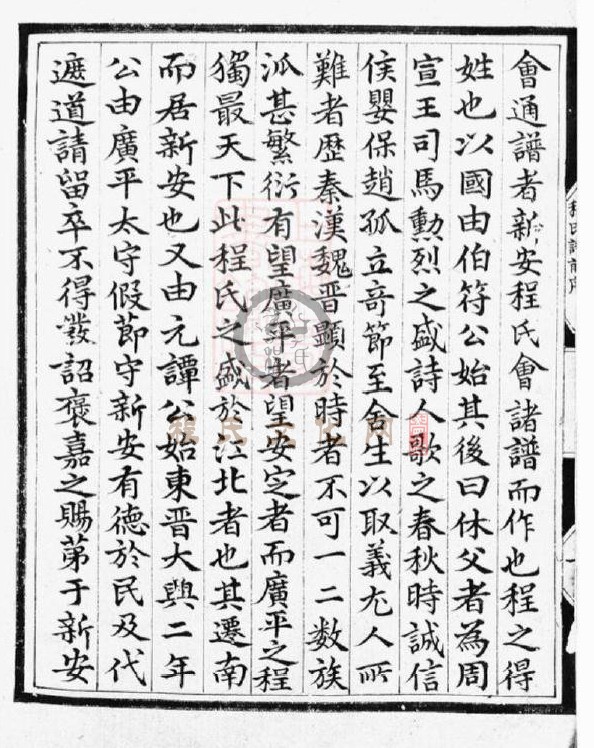 會通譜者新安程氏會諸譜而作也程之得
姓也以國由伯符公始其後曰休父者為周
宣王司馬勲烈之盛詩人歌之春秋時誠信
侯嬰保趙孤立竒節至舍生以取義尤人所
難者歷秦漢魏晉顯於時者不可一二數族
派甚繁衍有望廣平者望安定者而廣平之程
獨最天下此程氏之盛於江北者也其遷南
而居新安也又由元譚公始東晉大興二年
公由廣平太守假節守新安有德於民及代
遮道請留卒不得發詔褒嘉之賜第于新安
程氏文化网